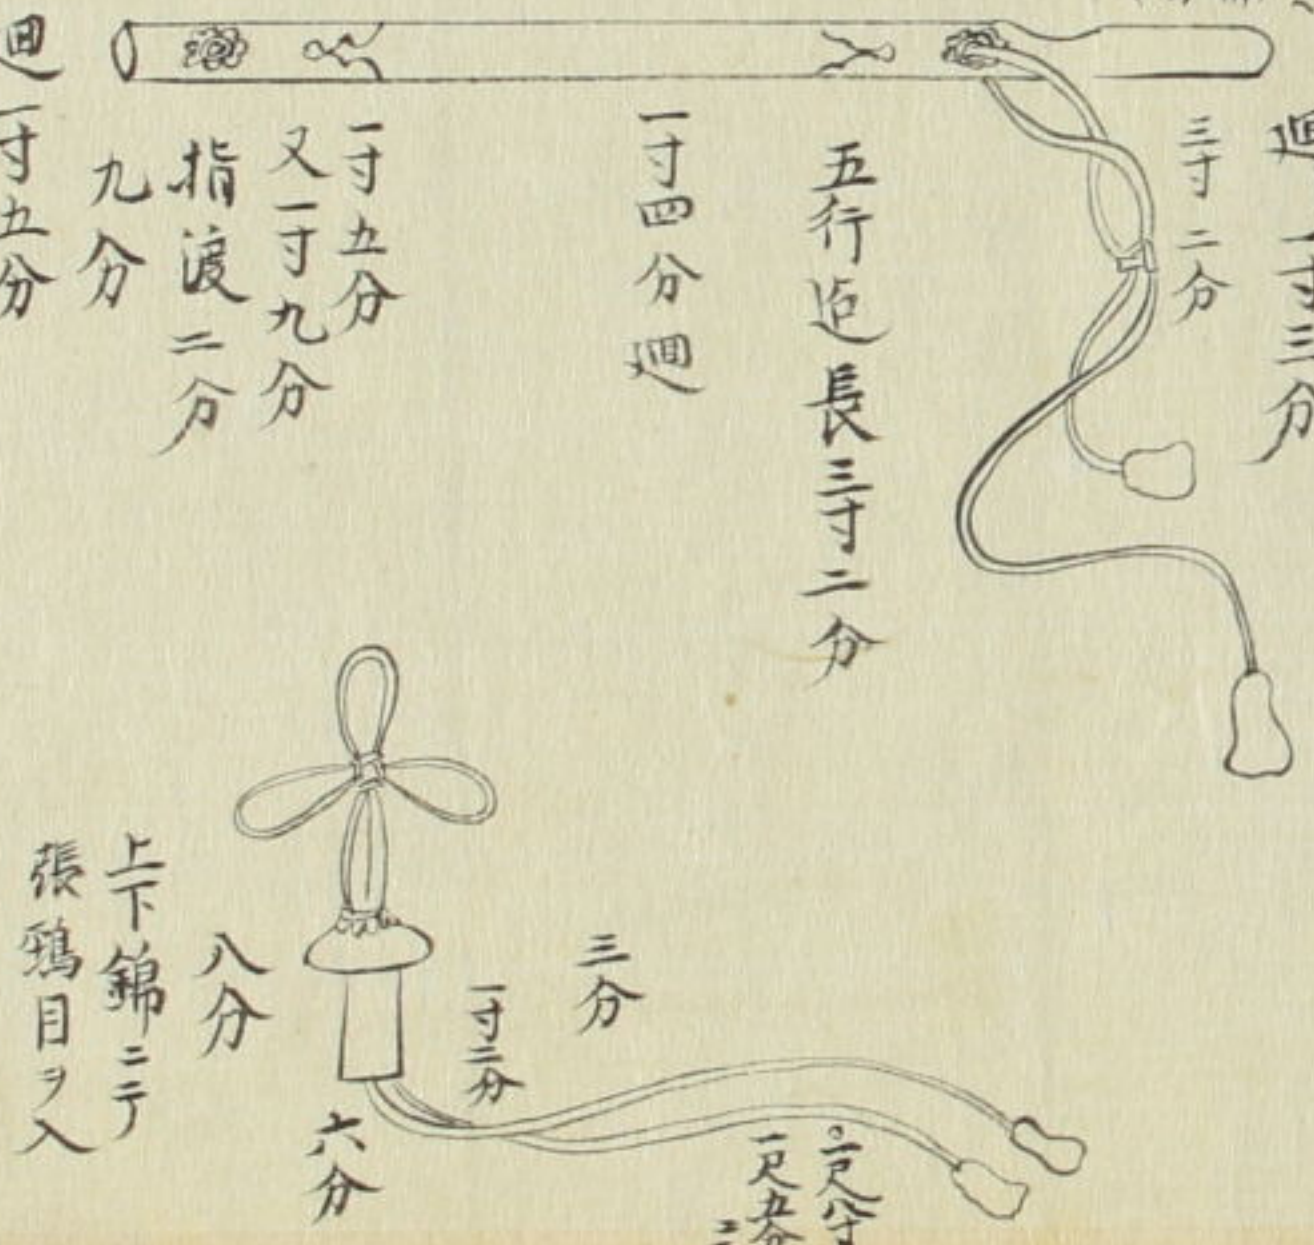 廻一寸三分
三寸二分
五行迄長三寸二分
一寸四分廻
一寸五分
又一寸九分
指渡二分
九分
廻一寸五分
三分
一寸二分
八分
六分
上下錦ニテ
張鵄目ヲ入
一尺八寸
一尺五分